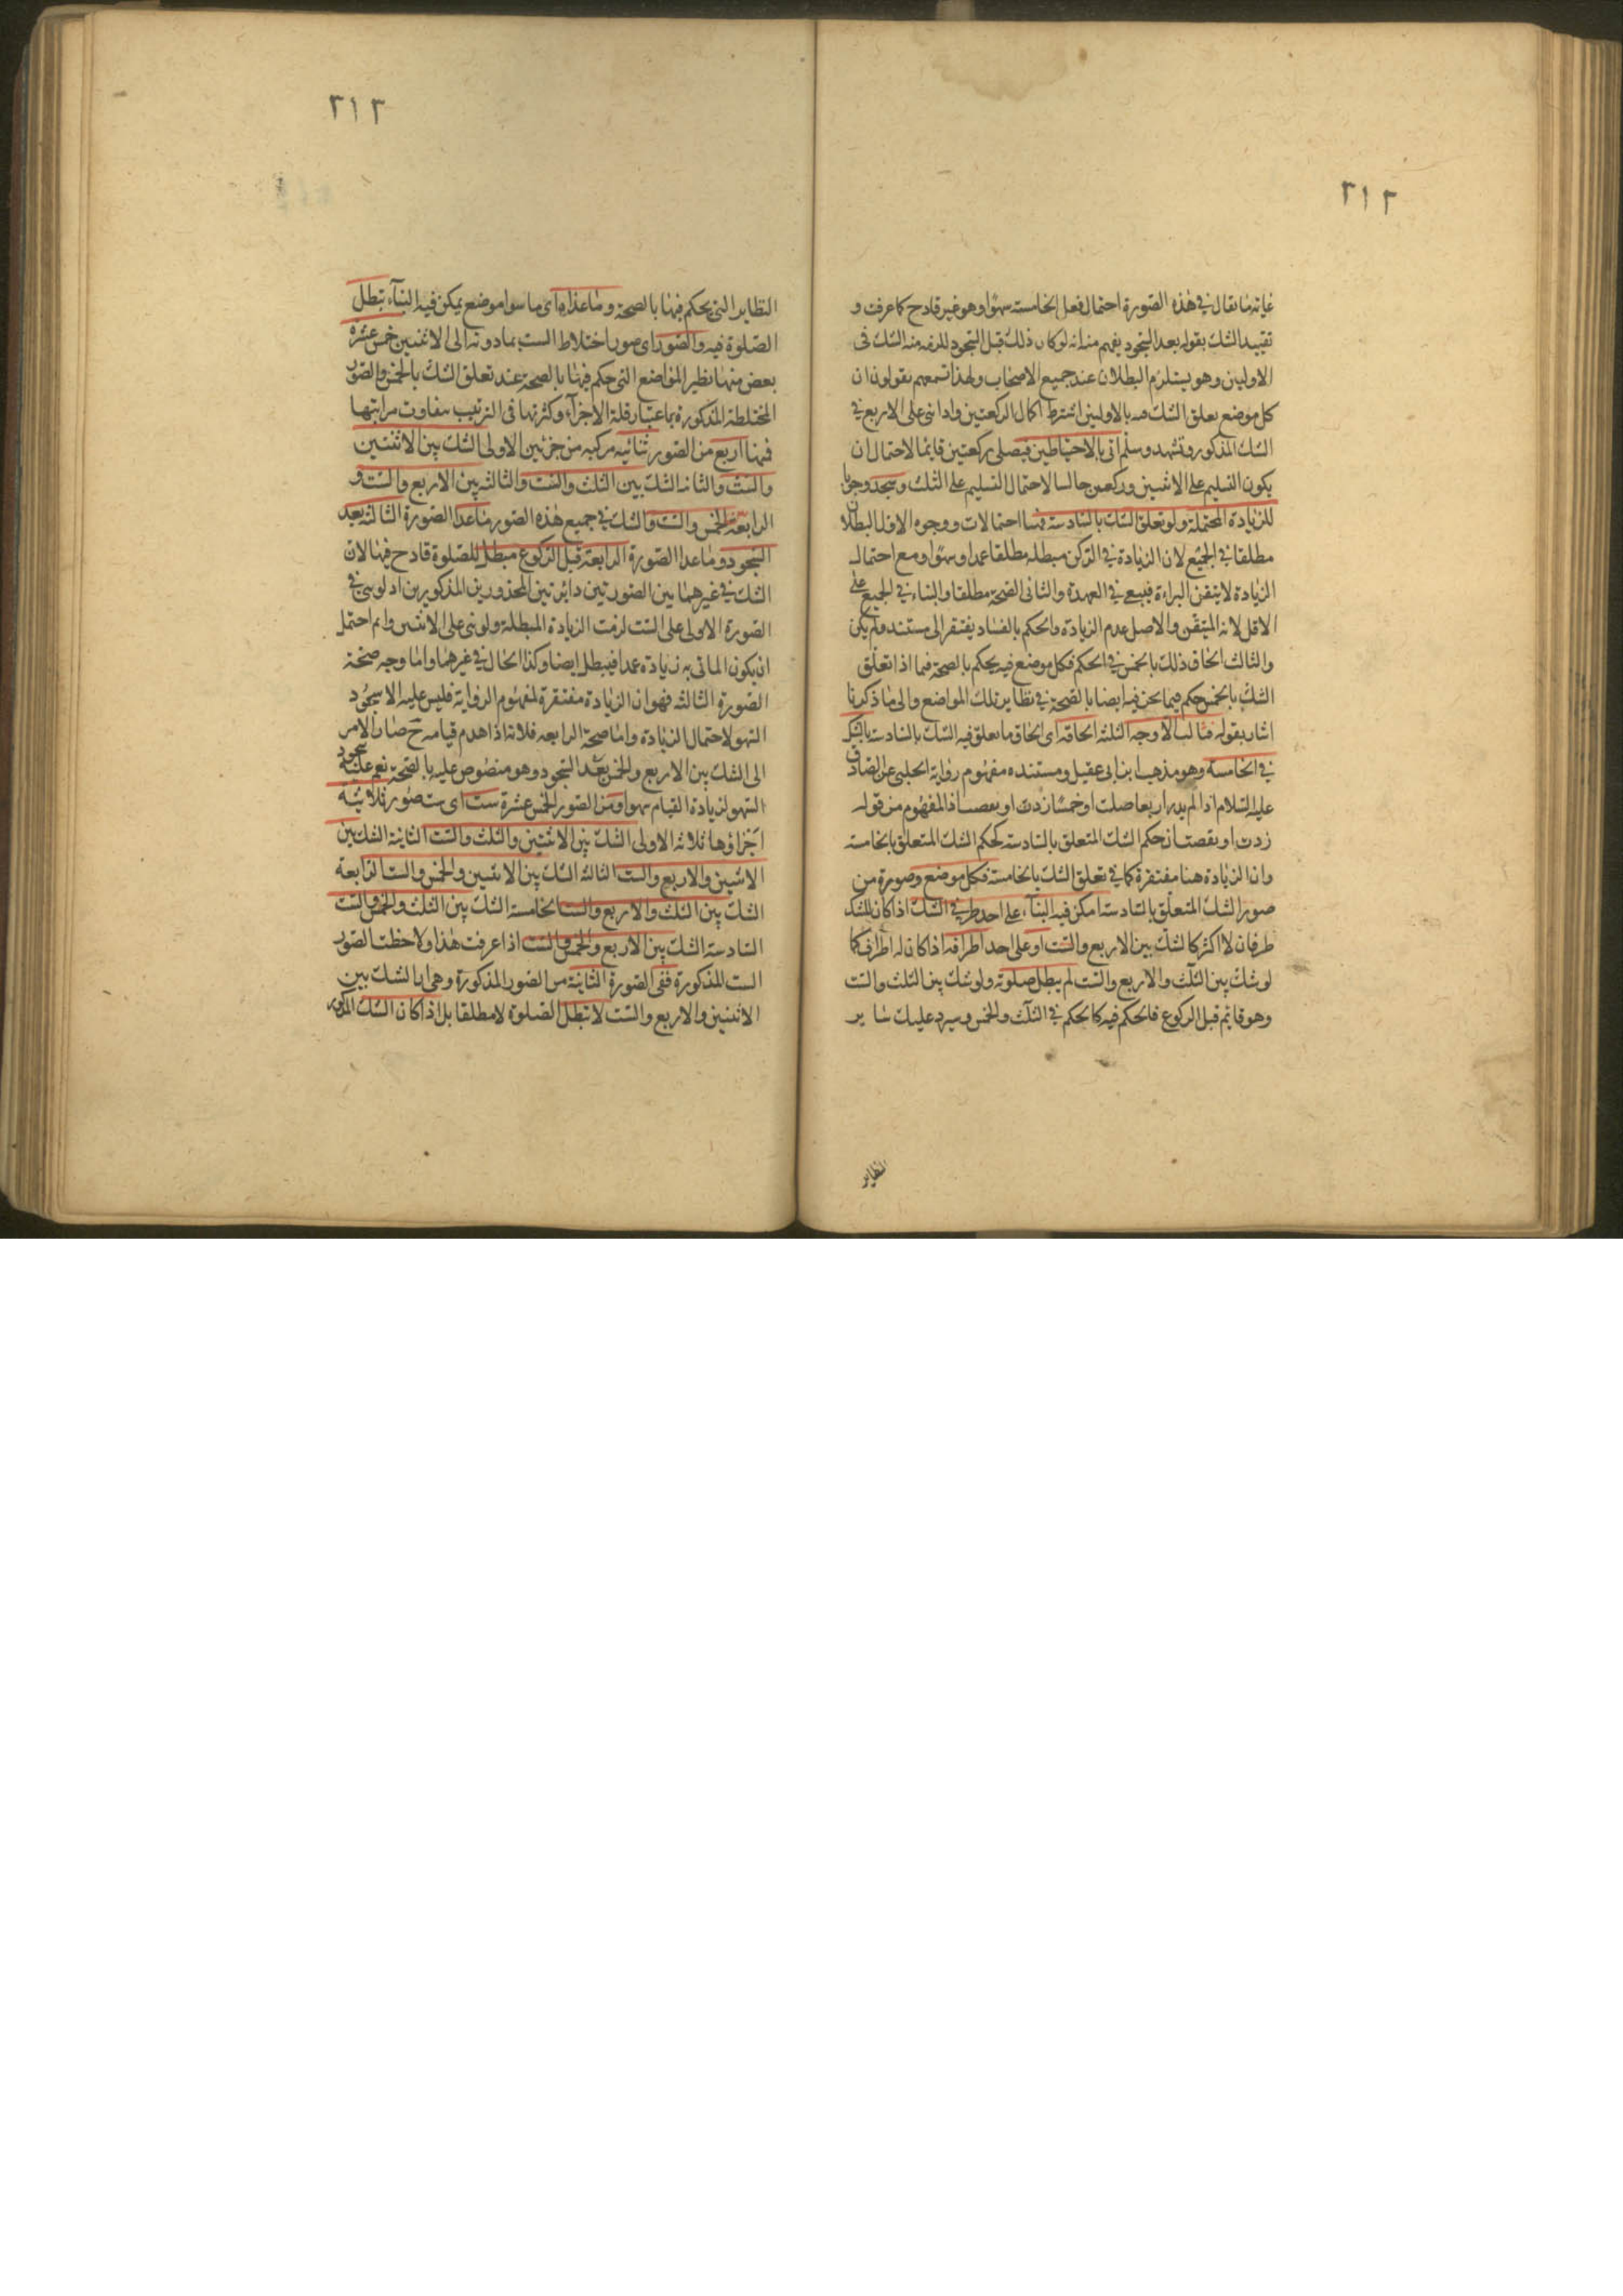 ٢١٢
غاية ما يقال في هذه الصورة احتمال فعل الخامسة سهوا وهو غير قادح كما عرفت و
تقييد الشك بقوله بعد السجود يفهم منه انه لو كان ذلك قبل السجود للزمه منه الشك فى
الاوليين وهو يستلزم البطلان عند جميع الاصحاب ولهذا تسمعهم يقولون ان
كل موضع تعلق الشك فيه بالاوليين اشترط اكمال الركعتين واذا بنى على الاربع في
الشك المذكور وتشهد وسلم اتى بالاحتياطين فيصلى ركعتين قائما لاحتمال ان
يكون التسليم على الاثنين وركعتين جالسا لاحتمال التسليم على الثلث وسجد وجوبا
للزيادة المحتملة ولو تعلق الشك بالسادسة ففيها احتمالات ووجوه الاول البطلان
مطلقا في الجميع لان الزيادة في الركن مبطلة مطلقا عمدا وسهوا ومع احتمال
الزيادة لا يتيقن البراءة فيبقى في العهدة والثانى الصحة مطلقا والبناء في الجميع على
الاقل لانه المتيقن والاصل عدم الزيادة والحكم بالفساد يفتقر الى مستند ولم يكن
والثالث الحاق ذلك بالخمس في الحكم فكل موضع فيه يحكم بالصحة فيما اذا تعلق
الشك بالخمس حكم فيما نحن فيه ايضا بالصحة في نظاير تلك المواضع والى ما ذكرنا
اشار بقوله ثالث الاوجه الثلثة الحاقه اى الحاق ما تعلق فيه الشك بالسادسة بالشك
في الخامسة وهو مذهب ابن ابى عقيل ومستنده مفهوم رواية الحلبى عن الصادق
عليه السلام اذا لم يدر اربعا صليت او خمسا زدت او نقصت اذ المفهوم من قوله
زدت او نقصت ان حكم الشك المتعلق بالسادسة كحكم الشك المتعلق بالخامسة
وان الزيادة هنا مغتفرة كما في تعلق الشك بالخامسة فكل موضع وصورة من
صور الشك المتعلق بالسادسة امكن فيه البناء على احد طرفي الشك اذا كان للشك
طرفان لا اكثر كالشك بين الاربع والست او على احد اطرافه اذا كان له اطراف كما
لو شك بين الثلث والاربع والست لم يبطل صلوته ولو شك بين الثلث والست
وهو قائم قبل الركوع فالحكم فيه كالحكم في الثلث والخمس وسيرد عليك ساير
النظاير
٢١٣
النظاير التى يحكم فيها بالصحة وما عداه اى ما سوا موضع يمكن فيه البناء تبطل
الصلوة فيه والصور اى صور اختلاط الست بما دونه الى الاثنين خمس عشرة
بعض منها نظير المواضع التى حكم فيها بالصحة عند تعلق الشك بالخمس والصور
المختلطة المذكورة باعتبار قلة الاجزاء وكثرتها فى الترتيب متفاوت مراتبها
فمنها اربع من الصور ثنائيه مركبه من جزئين الاولى الشك بين الاثنتين
والست والثانية الشك بين الثلث والست والثالثه بين الاربع والست و
الرابعة الخمس والست والشك في جميع هذه الصور ما عدا الصورة الثالثة بعد
السجود وما عدا الصورة الرابعة قبل الركوع مبطل للصلوة قادح فيها لان
الشك في غيرهما بين الصورتين دائر بين المحذورين المذكورين اذ لو بنى في
الصورة الاولى على الست لزمت الزيادة المبطلة ولو بنى على الاثنين واتم احتمل
ان يكون الماتى به زيادة عمدا فيبطل ايضا وكذا الحال في غيرهما واما وجه صحة
الصورة الثالثه فهو ان الزيادة مغتفرة لمفهوم الرواية فليس عليه الا سجود
السهو لاحتمال الزيادة واما صحة الرابعه فلانه اذا هدم قيامه ح صار الامر
الى الشك بين الاربع والخمس بعد السجود وهو منصوص عليه بالصحة نعم عليه سجود
السهو لزيادة القيام سهوا ومن الصور الخمس عشرة ست اى ست صور ثلاثية
اجزاؤها ثلاثه الاولى الشك بين الاثنتين والثلث والست الثانية الشك بين
الاثنين والاربع والست الثالثة الشك بين الاثنين والخمس والست الرابعة
الشك بين الثلث والاربع والست الخامسة الشك بين الثلث والخمس والست
السادسة الشك بين الاربع والخمس والست اذا عرفت هذا ولاحظت الصور
الست المذكورة ففى الصورة الثانية من الصور المذكورة وهى الشك بين
الاثنين والاربع والست لا تبطل الصلوة لا مطلقا بل اذا كان الشك المذكور